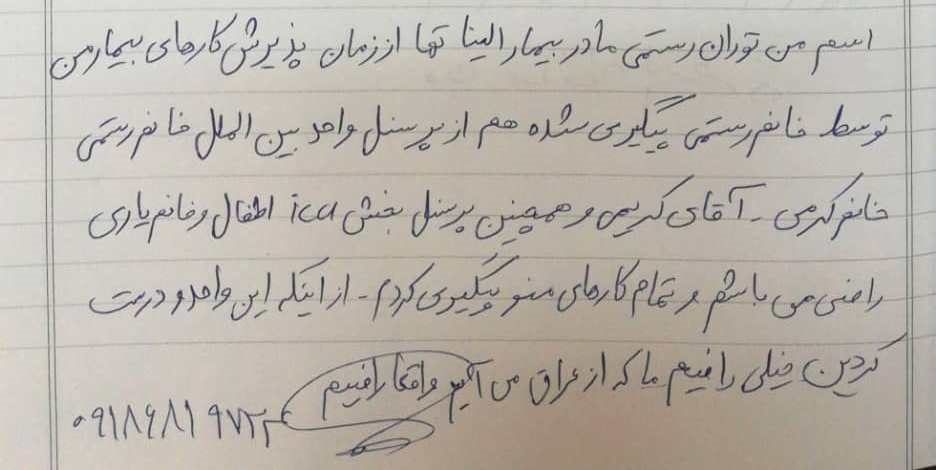 اسم من توران رستمی مادر بیمار الینا تها از زمان پذیرش کارهای بیمار من
توسط خانم رستمی پیگیری شده هم از پرسنل واحد بین الملل خانم رستمی
خانم کرمی - آقای کریمی و همچنین پرسنل بخش icu اطفال و خانم یاری
راضی می باشم و تمام کارهای منو پیگیری کردم - از اینکه این واحدو درست
کردین خیلی راضیم ما که از عراق می آیم واقعا راضیم